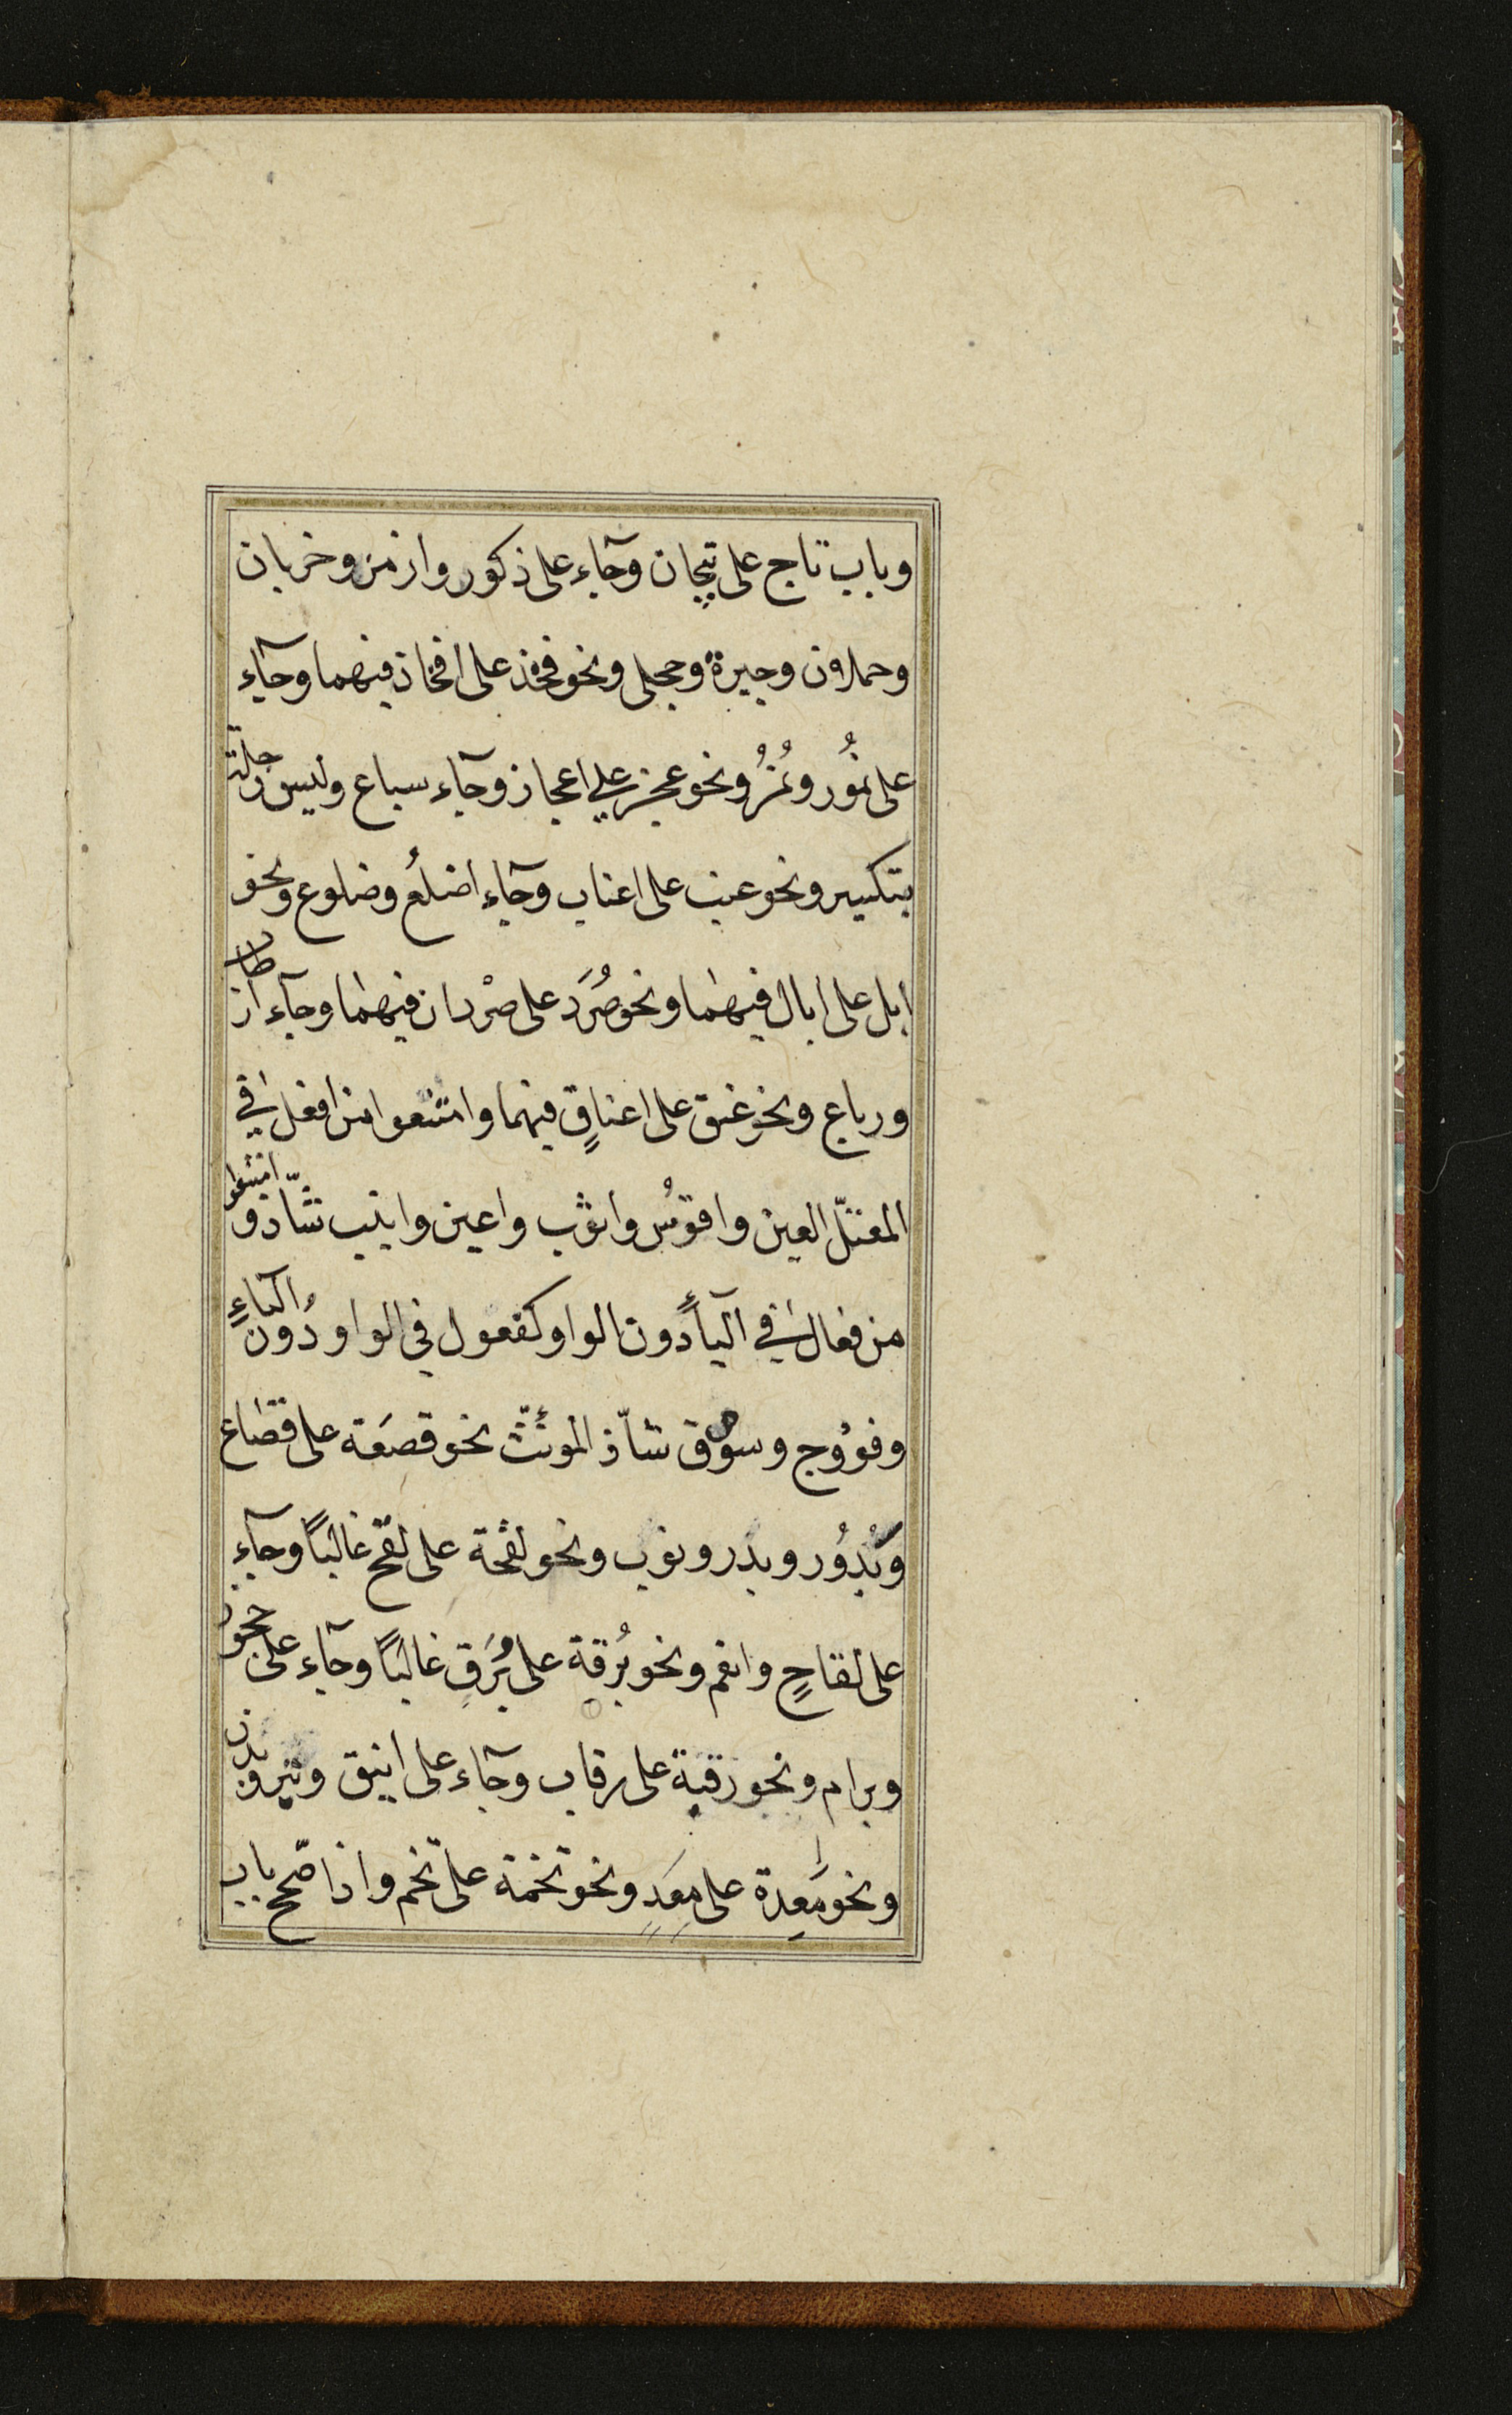 وباب تاج على تيجان وجآء على ذكور وازمن وخربان
وحملان وجيرة وحجلى ونحو فخذ على افخاذ فيهما وجآء
على نمُور ونمُرُ ونحو عجز على اعجاز وجآء سباع وليس رجلة
بتكسير ونحو عنب على اعناب وجآء اضلُع وضلوع ونحو
ابل على ابال فيهما ونحو صُرَد على صرْدان فيهما وجآء ارطاب
ورباع ونحو عنق على اعناقٍ فيهما وامتنعوا من افعل في
المعتلّ العين واقوُس واثوب واعين وانيب شاّذ وامتنعوا
من فعال في اليآءِ دون الواو كفعول في الواو دُون اليآءِ
وفوُوج وسوُق شاّذ المونّث نحو قصعَة على قصاع
وبُدوُر وبدر ونوب ونحو لقحة على لقح غالبًا وجآء
على لقاحٍ وانعم ونحو بُرقة على بُرَقٍ غالبًا وجآء على حجوز
وبرام ونحو رقبة على رقاب وجآء على اينق وتير وبدن
ونحو مَعِدة على مِعَدٍ ونحو تخمة على تخم واذا صّحح باب